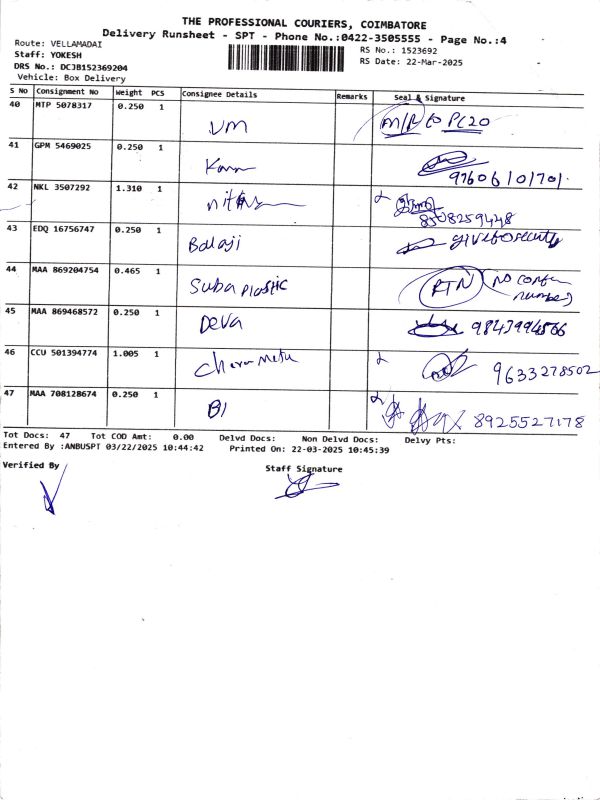 THE PROFESSIONAL COURIERS, COIMBATORE
Delivery Runsheet - SPT - Phone No.:0422-3505555 - Page No.:4
Route: VELLAMADAI
Staff: YOKESH
DRS No.: DCJB152369204
Vehicle: Box Delivery
RS No.: 1523692
RS Date: 22-Mar-2025
S No Consignment No Weight PCS Consignee Details Remarks Seal & Signature
40 MTP 5078317 0.250 1 VM
41 GPM 5469025 0.250 1
42 NKL 3507292 1.310 1 8508259448
43 EDQ 16756747 0.250 1 Balaji give to security
44 MAA 869204754 0.465 1 Suba Plastic RTN no number
45 MAA 869468572 0.250 1 Deva
46 CCU 501394774 1.005 1 9633278502
47 MAA 708128674 0.250 1 BI 8925527178
Tot Docs: 47 Tot COD Amt: 0.00 Delvd Docs: Non Delvd Docs: Delvy Pts:
Entered By :ANBUSPT 03/22/2025 10:44:42 Printed On: 22-03-2025 10:45:39
Verified By Staff Signature